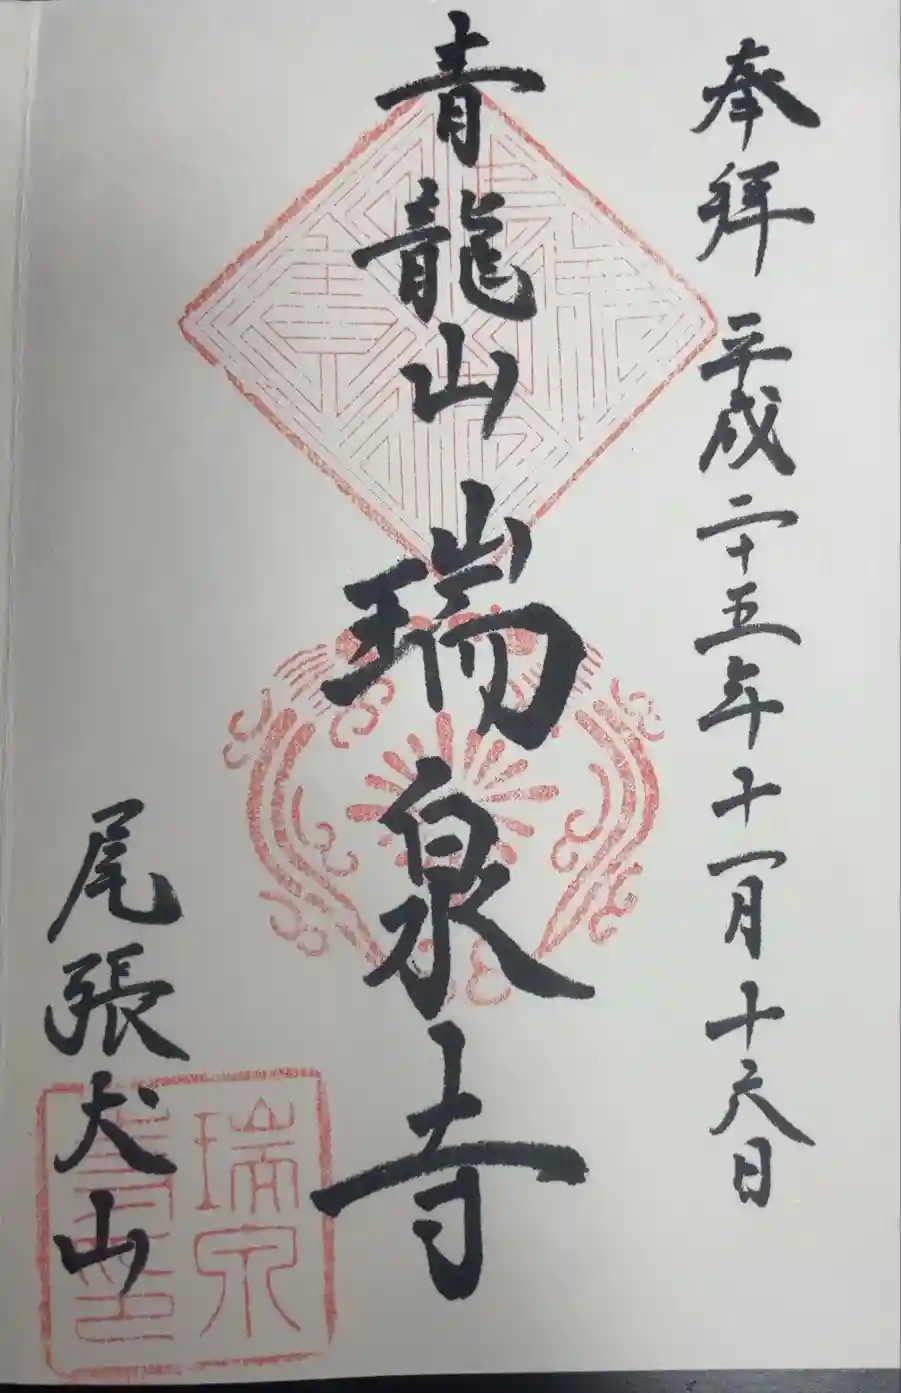 奉拝 平成二十五年十一月十六日
青龍山 瑞泉寺
尾張犬山
瑞泉